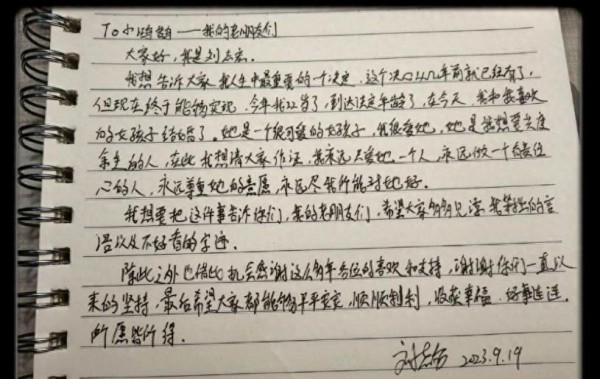 To小踏踏——我的老朋友们
大家好,我是刘志宏.
我想告诉大家我人生中最重要的一个决定,这个决定几年前就已经有了,
但现在终于能够实现,今年我22岁了,到达法定年龄了,在今天,我和我喜欢
的女孩子结婚了。她是一个很可爱的女孩子,我很爱她,她是我想要共度
余生的人,在此我想请大家作证,我永远只爱她一个人,永远做一个有责任
心的人,永远尊重她的意愿,永远尽我所能对她好。
我想要把这件事告诉你们,我的老朋友们,希望大家多多见谅我笨拙的言
语以及不好看的字迹.
除此之外也借此机会感谢这么多年各位的喜欢和支持,谢谢你们一直以
来的坚持,最后希望大家都能够平平安安,顺顺利利,收获幸福,好事连连.
所愿皆所得.
2023.9.19